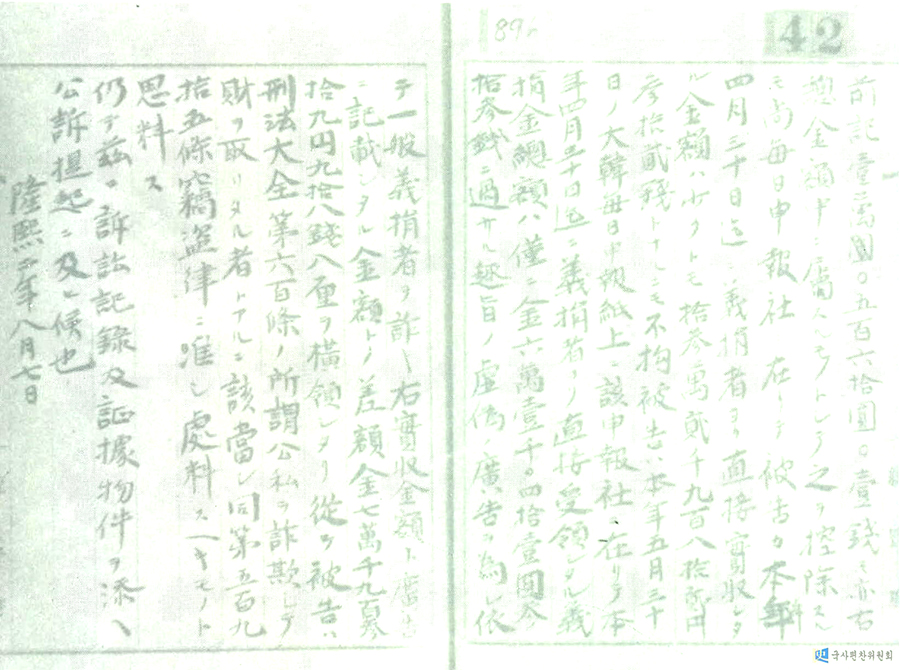 42
89
前記壹萬圓〇五百六拾圓〇壹銭モ亦右
總金額中ニ属スルモノトシテ之ヲ控除スル
モ尚毎日申報社ニ在リテ被告カ本年
四月三十日迄ニ義捐者ヨリ直接實収シタ
ル金額ハ少クトモ拾参萬貳千九百八拾貳円
参拾貳銭トナルニモ不拘被告ハ本年五月三十
日ノ大韓毎日申報紙上ニ該申報社ニ在リテ本
年四月三十日迄ニ義捐者ヨリ直接受領シタル義
捐金總額ハ僅ニ金六萬壹千〇四拾壹圓参
拾参銭ニ過サル趣旨ノ虚偽ノ廣告ヲ為シ依
テ一般義捐者ヲ詐リ右實収金額ト廣告
ニ記載シタル金額トノ差額金七萬千九百参
拾九円九拾八銭八厘ヲ横領シタリ従テ被告ハ
刑法大全第六百條ノ所謂公私ヲ詐欺シテ
財ヲ取リタル者トアルニ該當シ同第五百九
拾五條窃盗律ニ准シ處料スヘキモノト
思料ス
仍テ茲ニ訴訟記録及証據物件ヲ添ヘ
公訴提起ニ及ヒ候也
隆熙二年八月七日
국사편찬위원회